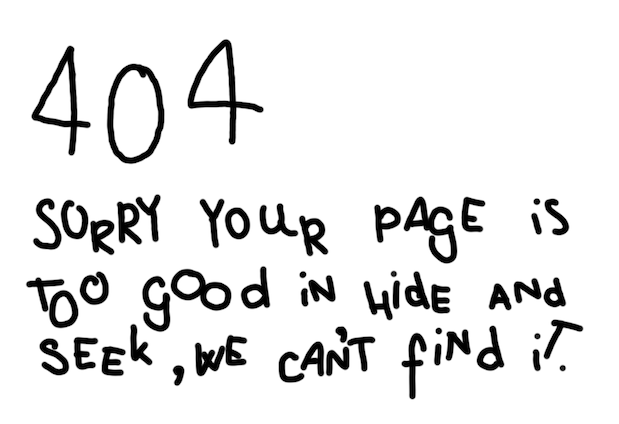 404
SORRY YOUR PAGE iS
TOO GOOd iN HidE ANd
SEEk, WE CAN'T fiNd iT.